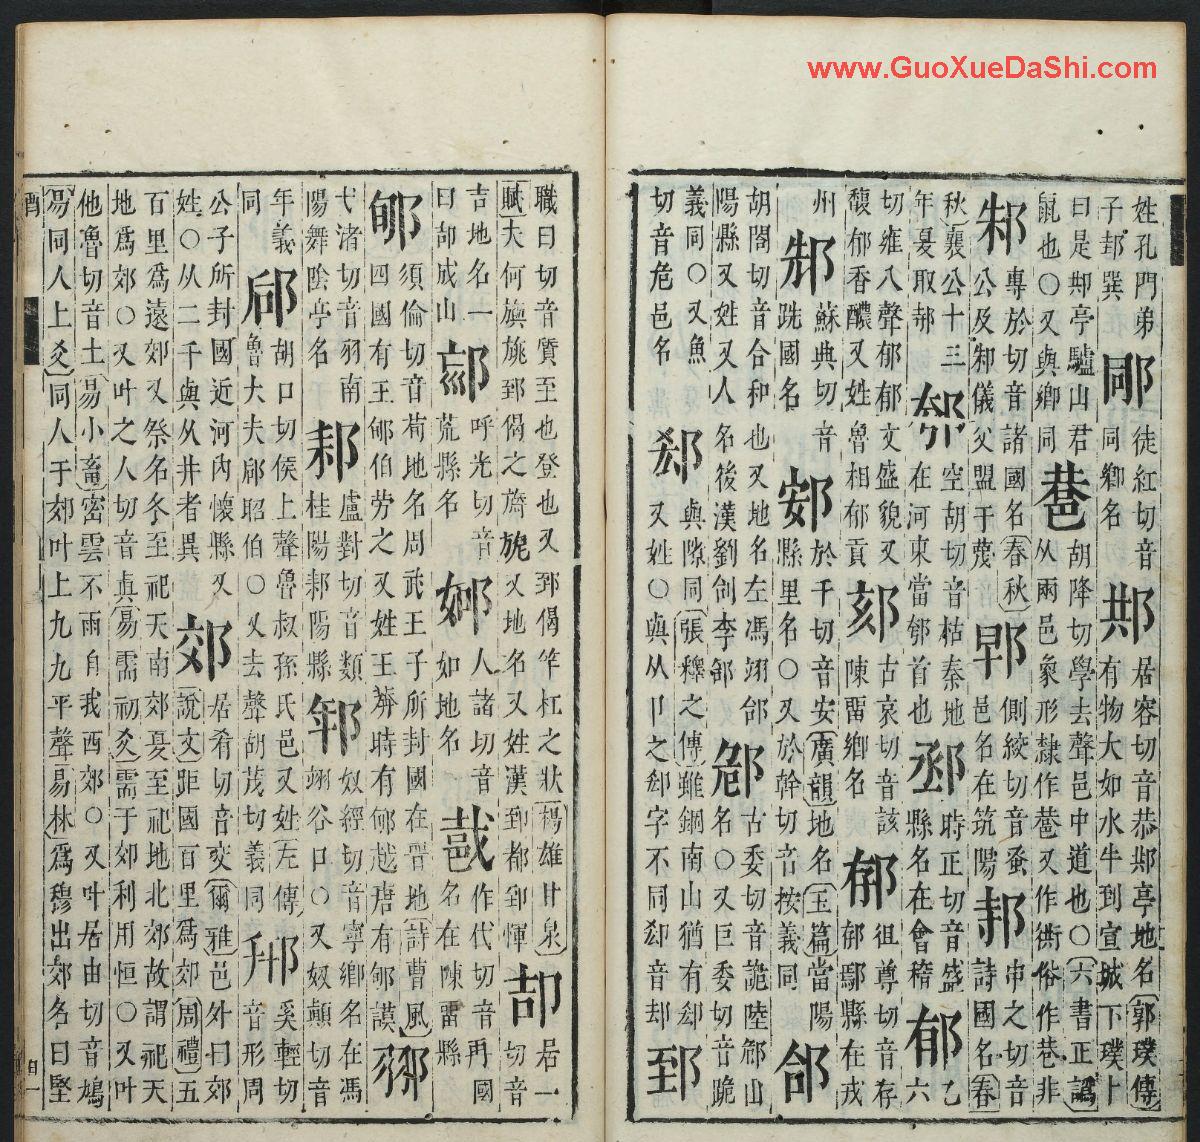 姓孔門弟子邽巽 徒紅切音同鄉名 䢼 居容切音恭䢼亭地名郭璞傳有物大如水牛到宣城下璞卜
曰是䢼亭驢山君鼠也○又與鄉同 胡降切學去聲邑中道也○六書正譌从兩邑象形隸作巷又作衖俗作巷非
邾 專於切音諸國名春秋公及邾儀父盟于蔑 側絞切音蚤邑名在筑陽 邿 申之切音詩國名春
秋襄公十三年夏取邿 郀 空胡切音枯秦地在河東當郀首也 時正切音盛縣名在會稽 郁 乙六
切雍八聲郁郁文盛貌又馥郁香醲又姓魯相郁貢 郂 古哀切音該陳畱鄉名 徂尊切音存郁鄢縣在戎
州 蘇典切音跣國名 於千切音安廣韻地名玉篇當陽縣里名○又於幹切音按義同 郃
胡閤切音合和也又地名左馮翊郃陽縣又姓又人名後漢劉劍李郃 古委切音詭陸 山名○又巨委切音跪
義同○又魚切音危邑名 郄 與隙同張釋之傳雖錮南山猶有郄又姓○與从卩之却字不同却音却 郅
職日切音質至也登也又郅偈竿杠之狀楊雄甘泉賦夫何旟旐郅偈之旖旎又地名又姓漢郅都郅惲 郆 居一切音
吉地名一曰郆成山 呼光切音荒縣名 人諸切音如地名 作代切音再國名在陳畱縣
郇 須倫切音荀地名周武王子所封國在晉地詩曹風四國有王郇伯勞之又姓王莽時有郇越唐有郇謨
弋渚切音羽南陽舞陰亭名 盧對切音類桂陽耒陽縣 奴經切音寧鄉名在馮翊谷口○又奴顛切音
年義同 郈 胡口切侯上聲魯叔孫氏邑又姓左傳魯大夫郈昭伯○又去聲胡茂切義同 邢 奚輕切音形周
公子所封國近河內懷縣又姓○从二千與从井者異 郊 居肴切音交爾雅邑外曰郊說文距國百里爲郊周禮五
百里爲遠郊又祭名冬至祀天南郊夏至祀地北郊故謂祀天地爲郊○又叶之人切音眞易需初爻需于郊利用恒○又叶
他魯切音土易小畜密雲不雨自我西郊○又叶居由切音鳩易同人上爻同人于郊叶上九九平聲易林爲穆出郊名曰堅
酉
www.GuoXueDaShi.com